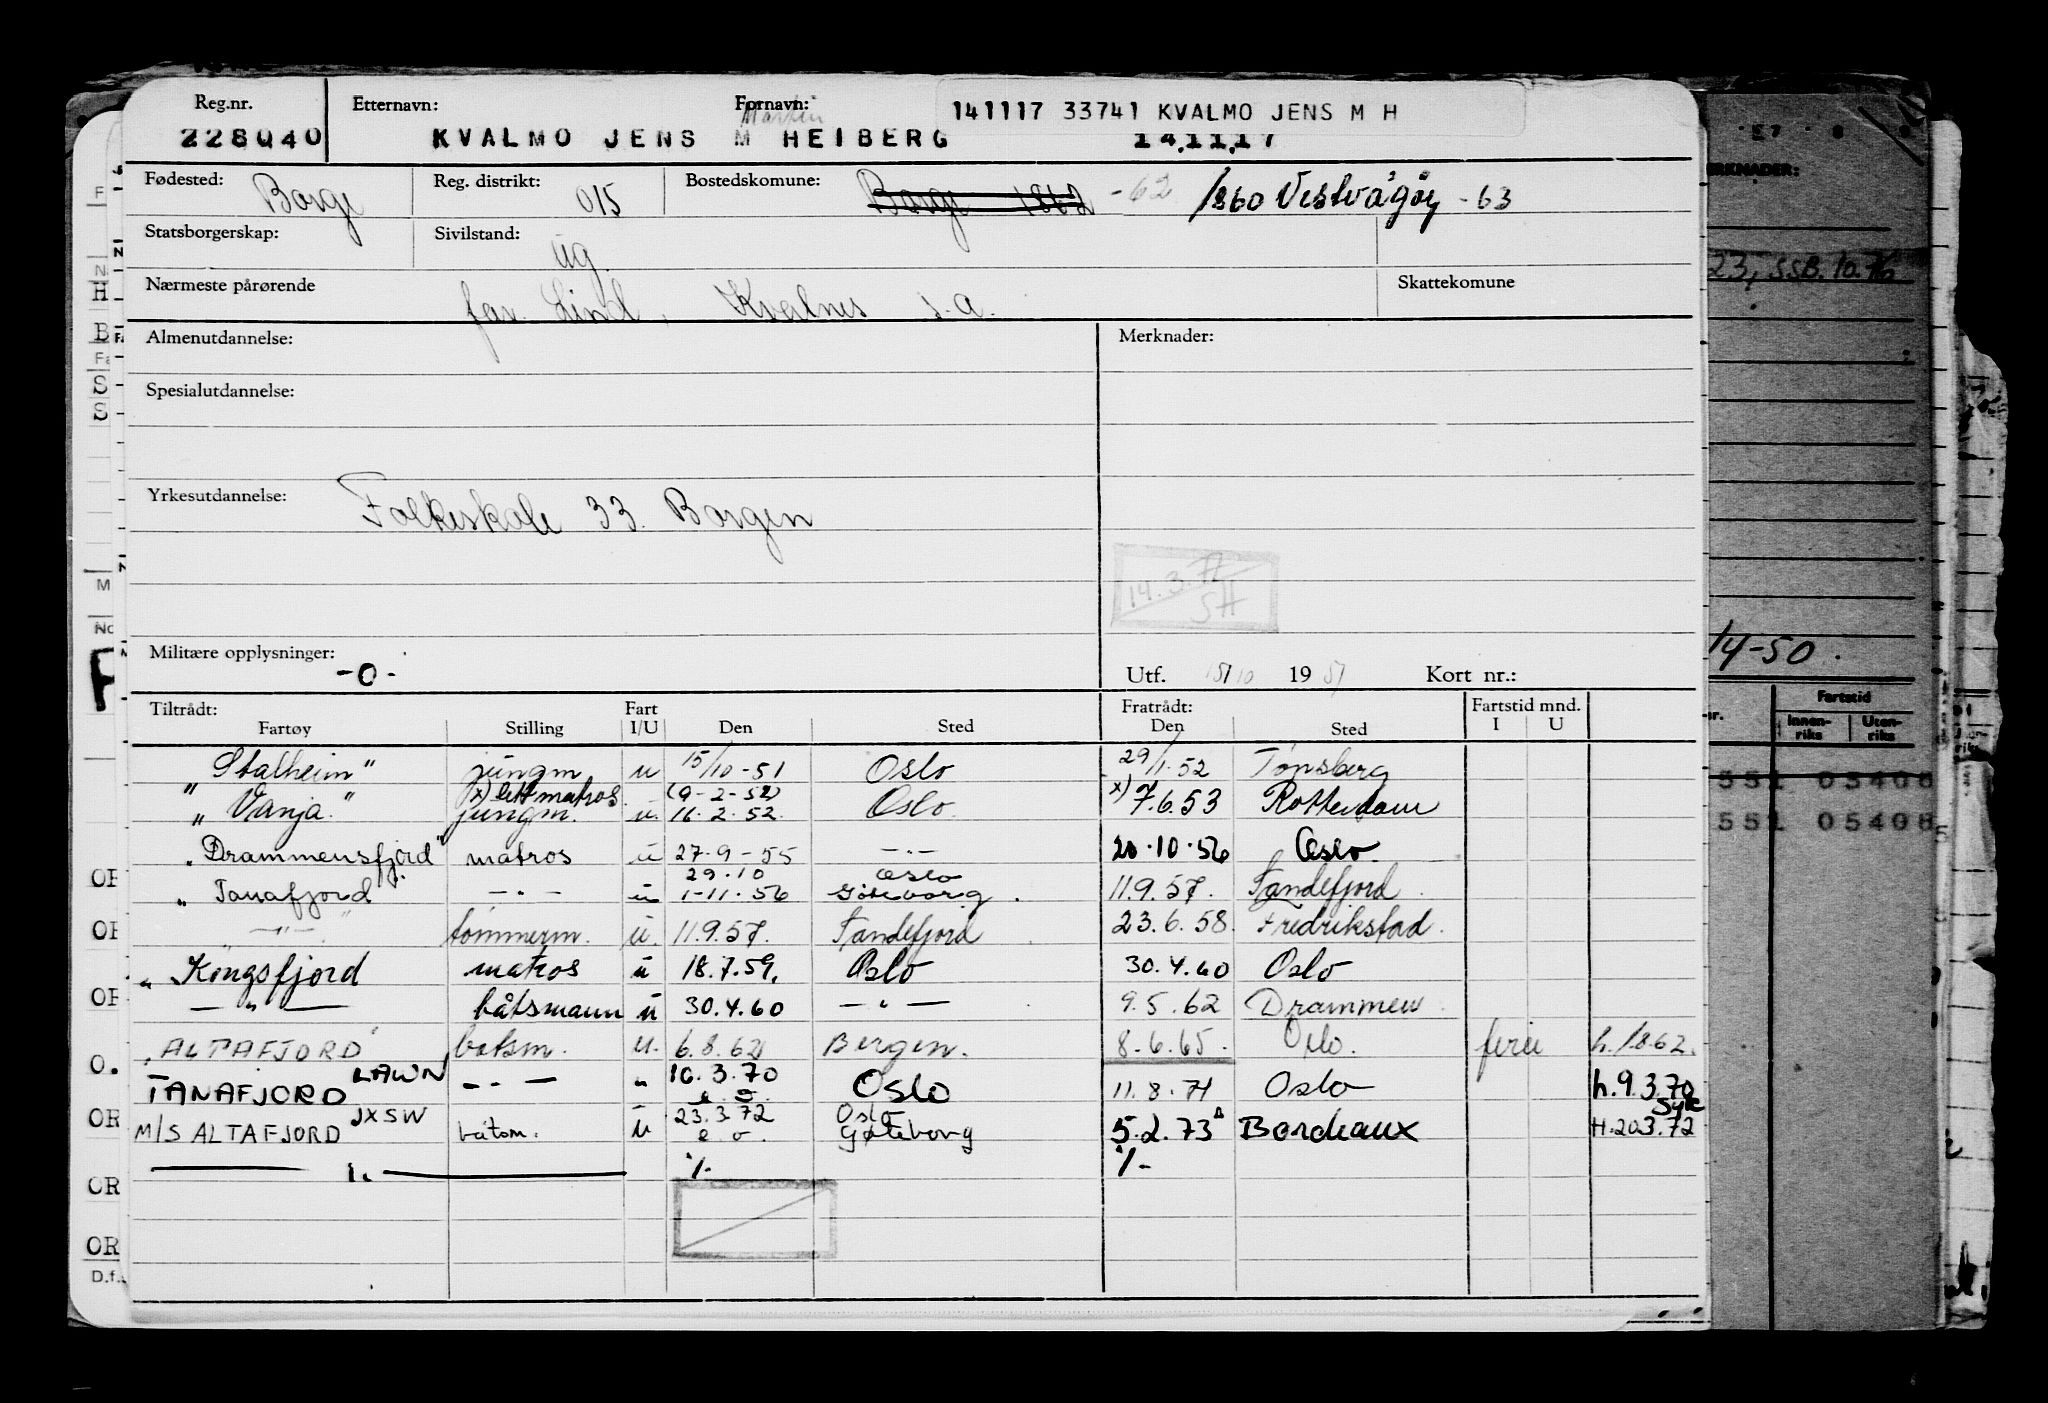 Reg.nr. Etternavn: Fornavn: 141117 33741 KVALMO JENS M H
Martin
228040 KVALMO JENS M HEIBERG 14.11.17
Fødested: Borge Reg. distrikt: 015 Bostedskomune: Borge 1862 -62 1860 Vestvågøy - 63
Statsborgerskap: Sivilstand: ug.
Nærmeste pårørende far. Lind, Kvalnes s.a. Skattekomune
Almenutdannelse: Merknader:
Spesialutdannelse:
Yrkesutdannelse: Folkeskole 33. Borgen
14.3.72
SH
Militære opplysninger: -0-
Utf. 15/10 1951 Kort nr.:
Tiltrådt: Fart Fratrådt: Fartstid mnd.
Fartøy Stilling I/U Den Sted Den Sted I U
"Stalheim" jungm u 15/10-51 Oslo 29/1.52 Tønsberg
x) lettmatros (9-2-52)
"Vanja" jungm. u. 16.2.52. Oslo. x) 7.6.53 Rotterdam
"Drammensfjord" matros u 27.9-55 -"- 20.10.56 Oslo.
29.10 Oslo
"Tanafjord" -"- u 1-11.56 Göteborg. 11.9.57. Sandefjord
-"- tømmerm. u. 11.9.57. Sandefjord 23.6.58. Fredrikstad.
"Kongsfjord matros u 18.7.59. Oslo 30.4.60 Oslo
-"- båtsmann u 30.4.60 -"- 9.5.62 Drammen
"ALTAFJORD" båtsm. u. 6.8.62 Bergen. 8.6.65. Oslo. ferie h.1.8.62.
TANAFJORD LAWN -"- " 10.3.70 Oslo 11.8.71 Oslo h.9.3.70
e.o. Syk
M/S ALTAFJORD JXSW båtsm. u 23.3.72 Oslo 5.2.73 Bordeaux H.20.3.72
e o. Gøteborg
%- %-
MERKNADER:
23, SSB. 10.76
14-50.
Fartstid
Innen-riks Uten-riks
551 05408
551 05408